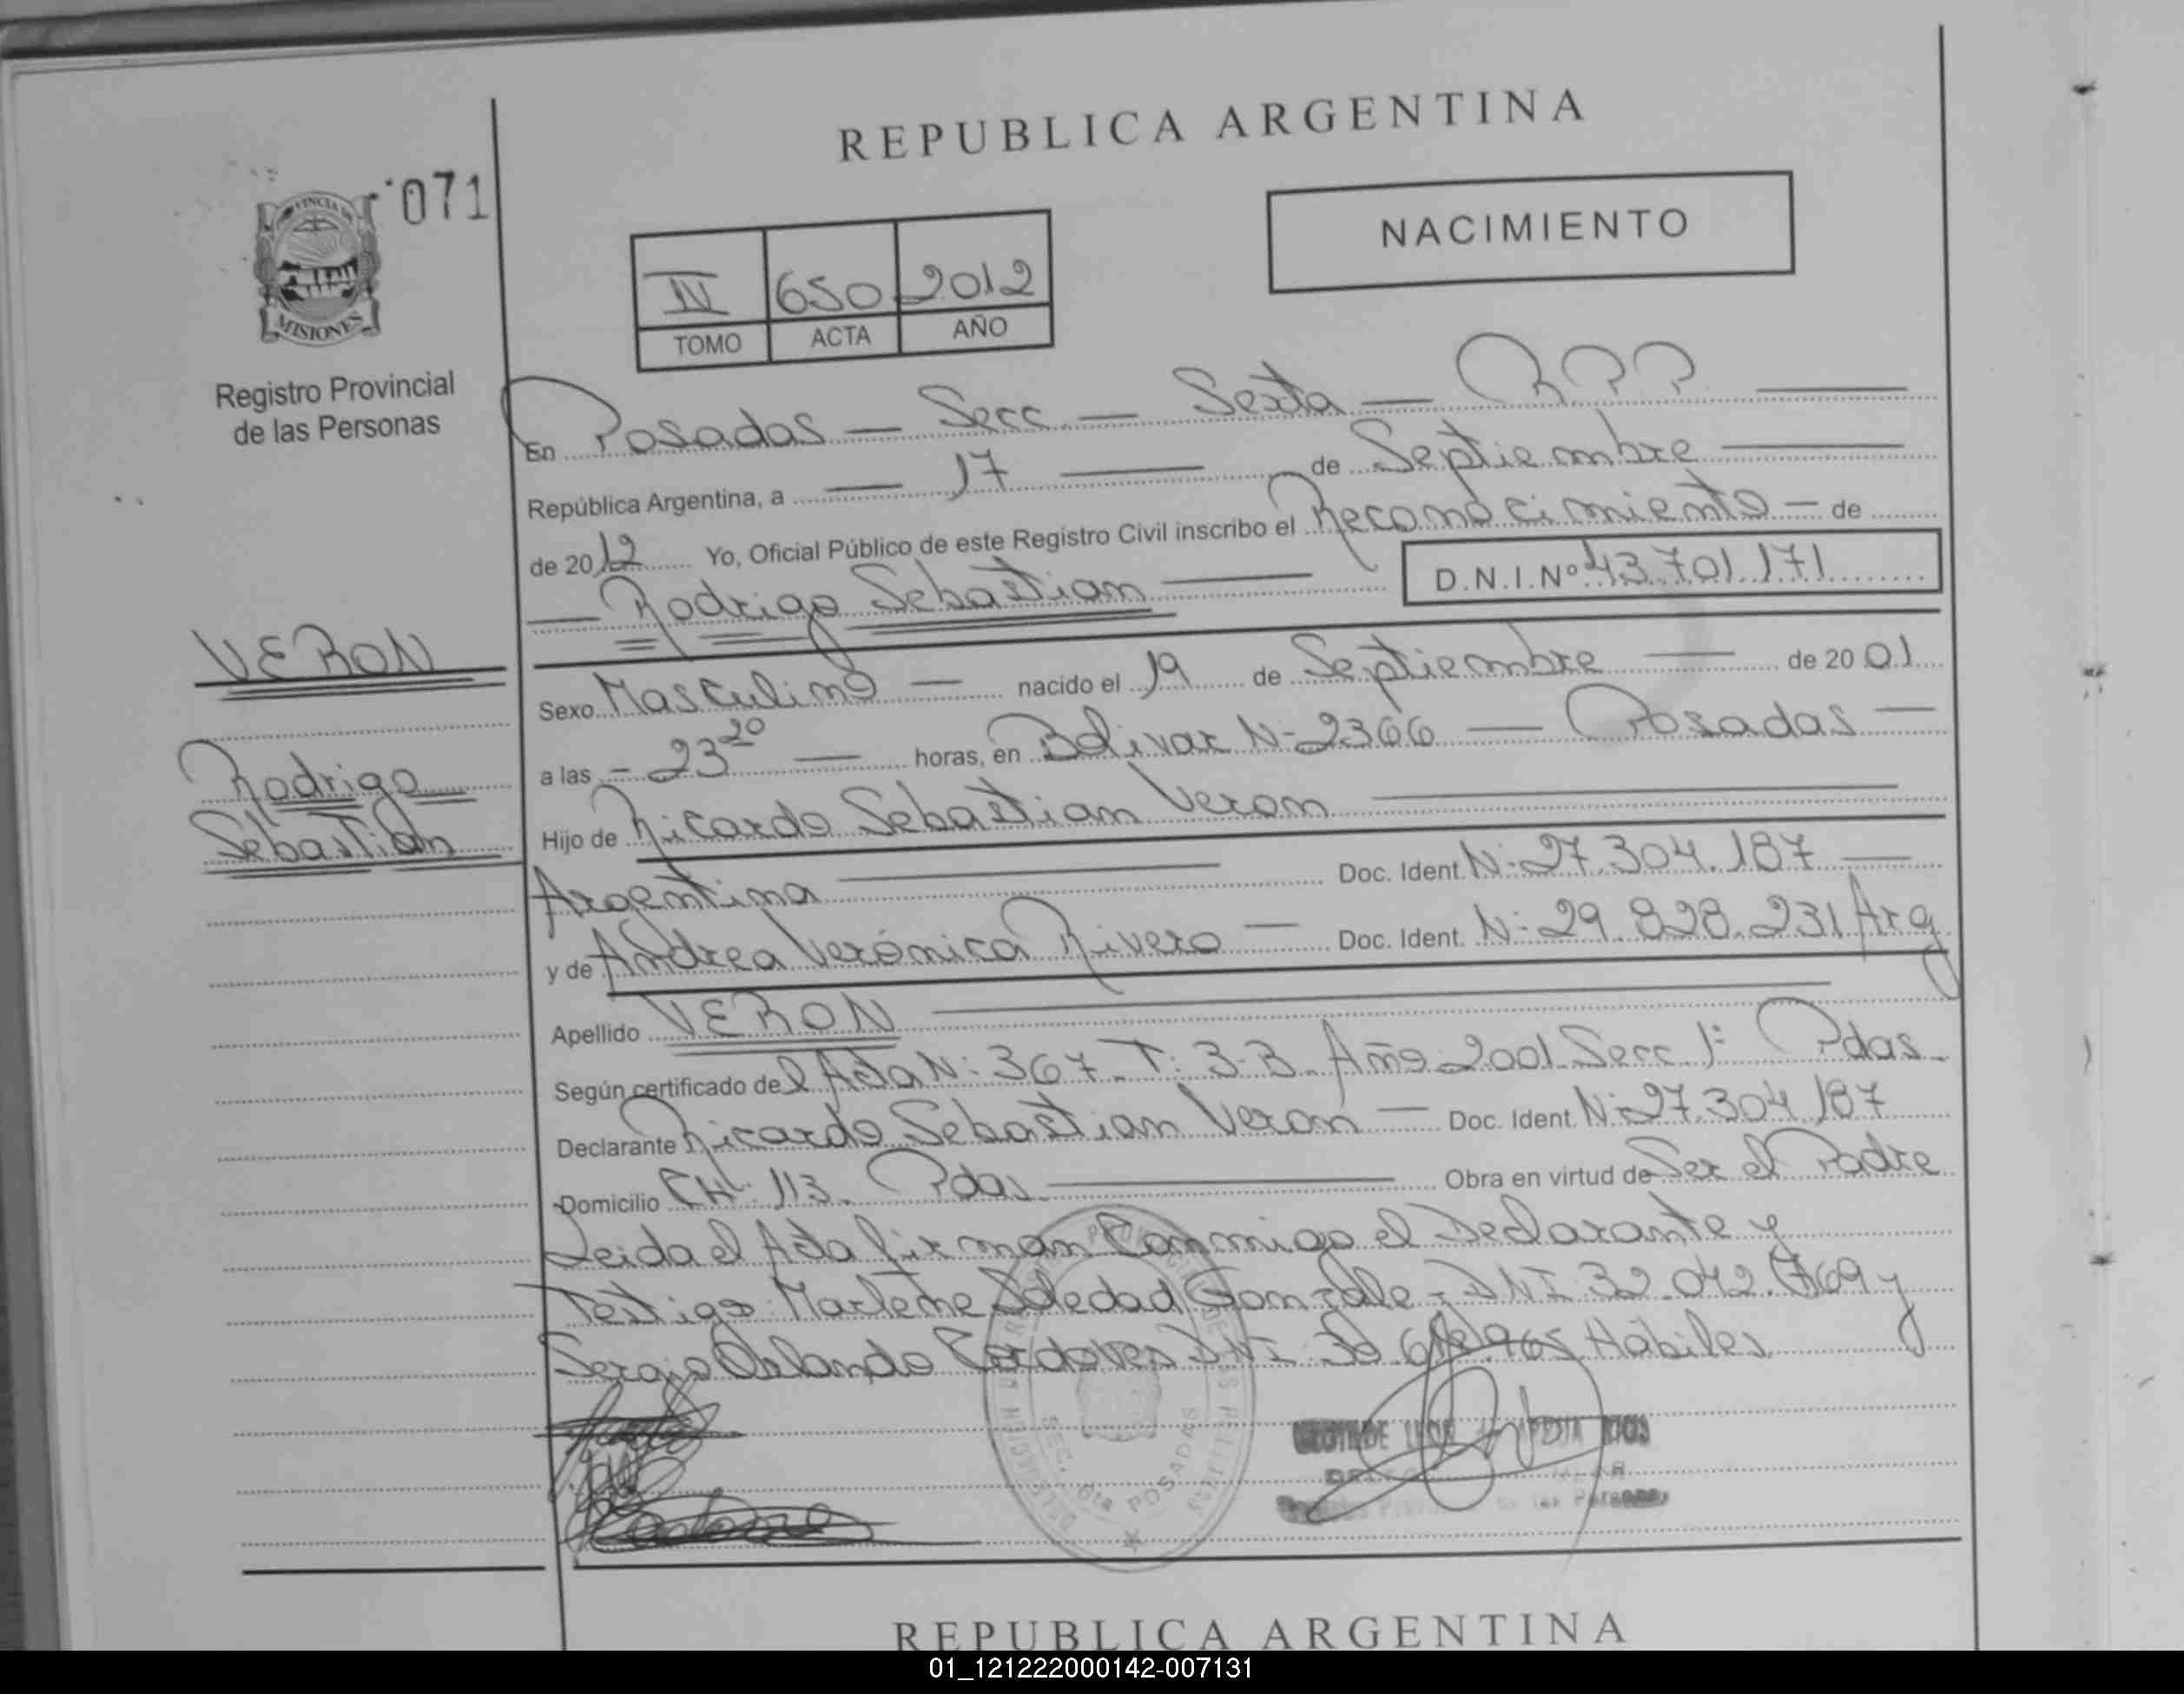 REPUBLICA ARGENTINA
071
PROVINCIA DE
MISIONES
Registro Provincial
de las Personas
NACIMIENTO
IV 650 2012
TOMO ACTA AÑO
En Posadas — Secc — Sexta — R P P
República Argentina, a — 17 — de Septiembre
de 2012 Yo, Oficial Público de este Registro Civil inscribo el Reconocimiento — de
— Rodrigo Sebastian — D.N.I.Nº 43.701.171
VERON
Rodrigo
Sebastian
Sexo Masculino — nacido el 19 de Septiembre — de 2001
a las - 23 20 — horas, en Bolivar N- 2366 — Posadas —
Hijo de Ricardo Sebastian Veron
Argentina — Doc. Ident. N: 27.304.187 —
y de Andrea Verónica Rivero — Doc. Ident. N: 29.828.231 Arg
Apellido VERON
Según certificado de l Acta N: 367 - T: 3-B. Año 2001 Secc 1ª Pdas
Declarante Ricardo Sebastian Veron — Doc. Ident. N: 27.304.187
Domicilio CH: 113. Pdas — Obra en virtud de Ser el Padre
Leida el Acta firman Conmigo el Declarante y
Testigos: Marlene Soledad DNI 32.042.769 y
Sergio Orlando DNI Hábiles
SEC. 6ta POSADAS
REPUBLICA ARGENTINA
01_121222000142-007131